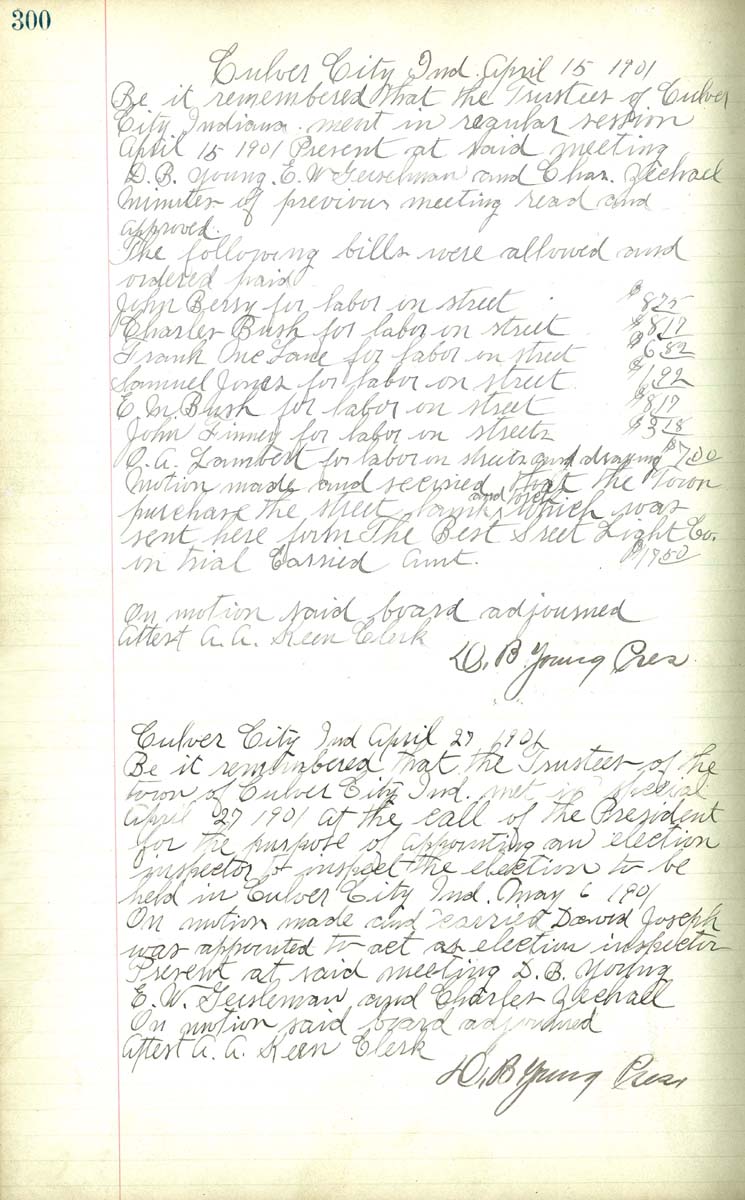 300
Culver City Ind. April 15 1901
Be it remembered that the Trustees of Culver
City Indiana. ment in regular session
April 15 1901 Present at said meeting
D. B. Young. E. W. Geiselman and Chas. Zechael
Minutes of previous meeting read and
approved.
The following bills were allowed and
ordered paid
John Berry for labor on street $8.75
Charles Bush for labor on street $8.17
Frank McLane for labor on street $6.82
Samuel Jones for labor on street $1.92
E. M. Bush for labor on street $8.17
John Finney for labor on streets $3.18
J. A. Lambert for labor on streets and draying $7.00
Motion made and seconed that the Town
purchase the street lamk and which was
sent here form The Best Sreet Light Co.
on trial Carried amt. $17.50
On motion said board adjourned
Attest A. A. Keen Clerk
D. B Young Pres
Culver City Ind April 27 1901
Be it remembered that the Trustees of the
town of Culver City Ind. met in special
April 27 1901 at the call of the President
for the purpose of appointing an election
inspector to inspect the election to be
held in Culver City Ind. May 6 1901
On motion made and carried David Joseph
was appointed to act as election inspector
Present at said meeting D. B. Young
E. W. Geisleman and Charles Zechael
On motion said board adjourned
Attest A. A. Keen Clerk
D. B Young Pres